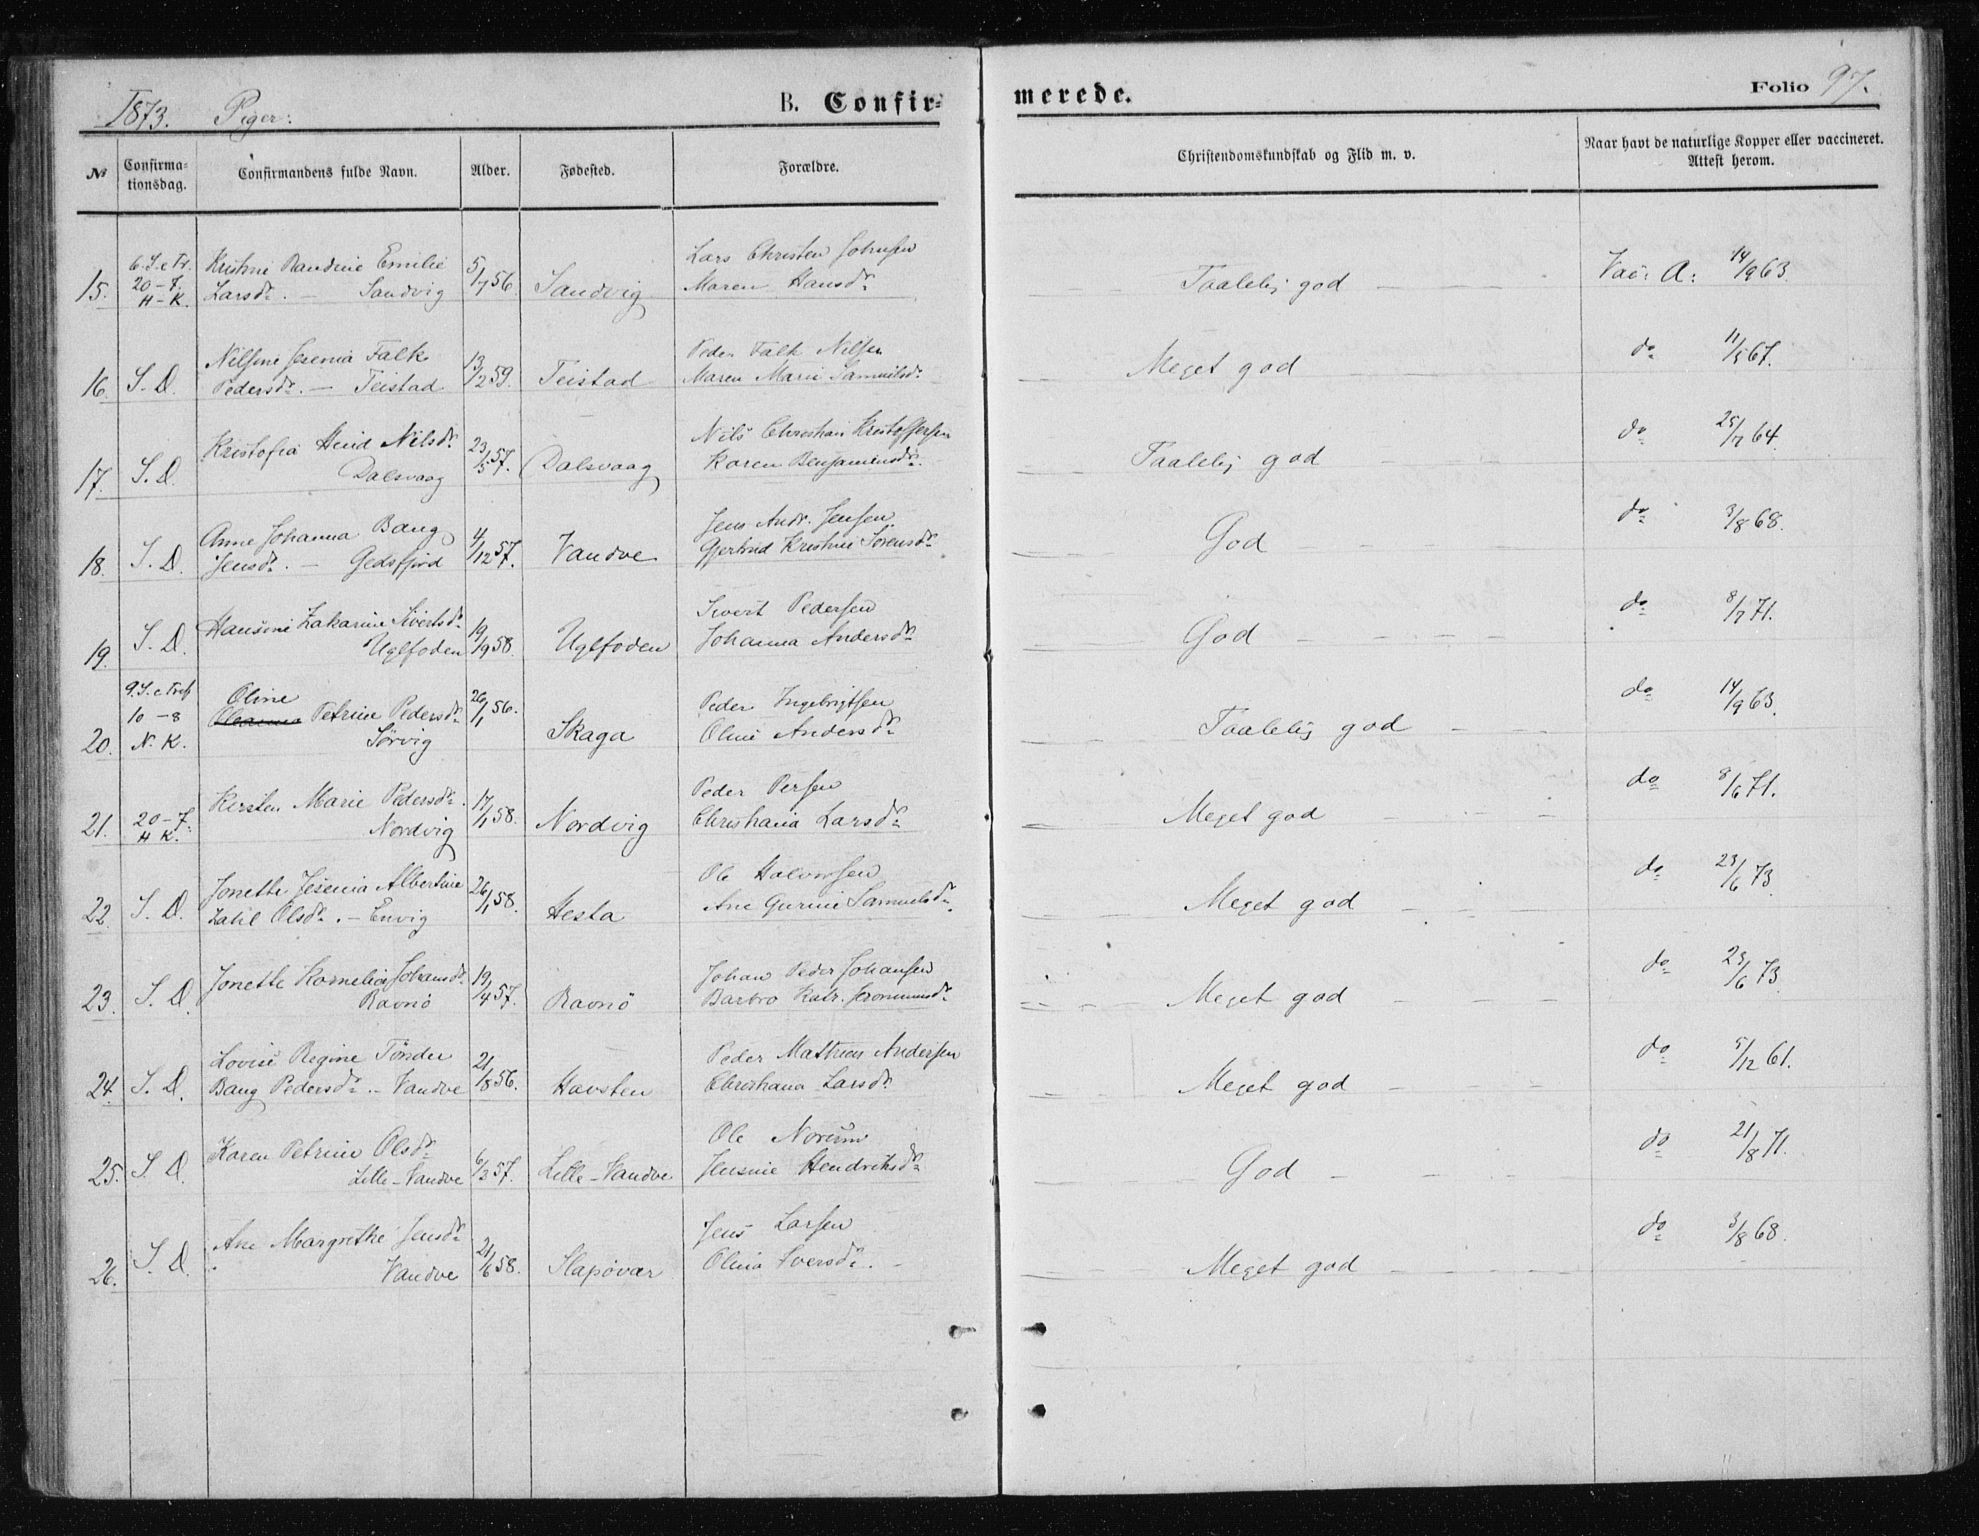 1873. Piger:
B. Confirmerede.
Folio 97.
№ Confirmationsdag. Confirmandens fulde Navn. Alder. Fødested. Forældre. Christendomskundskab og Flid m. v. Naar havt de naturlige Kopper eller vaccineret. Attest herom.
6. S. e Tr. Kristine Randine Emilie 5/7 56. Lars Christen Johnsen Vac: A: 14/9 63.
15. 20-7. H-K. Larsdr. — Sandvig Sandvig Maren Hansdr. Taalelig god
Nilsine Jesenia Falk 13/2 59. Peder Falk Nilsen do 11/5 67.
16. S. D. Pedersdr. — Teistad Teistad Maren Marie Samuilsdr. Meget god
Kristofia Nilsdr. 23/5 57. Nils Christian Kristoffersen do 25/7 64.
17. S. D. Dalsvaag Dalsvaag Karen Benjaminsdr. Taalelig god
Anne Johanna Bang 4/12 57. Jens Andr. Jensen do 3/8 68.
18. S. D. Jensdr. — Gedsfjord Vandve Gjertrud Kristine Sørensdr. God
Hansine Zakarine Sivertsdr. 19/9 58. Sivert Pedersen do 8/7 71.
19. S. D. Uglfoden Uglfoden Johanna Andersdr. God
9. S. e Tref Oline 26/1 56. Peder Ingebrigtsen do 14/9 63.
10-8 Petrine Pedersdr.
20. N. K. Sørvig Skaga Oline Andersdr. Taalelig god
Kirsten Marie Pedersdr. 17/1 58. Peder Persen do 8/6 71.
21. 20-7. H K. Nordvig Nordvig Christiania Larsdr. Meget god
Jonette Jesenia Albertine 26/1 58. Ole Halvorsen do 23/6 73.
22. S. D. Zahl Olsdr. — Envig Hesta Ane Gurine Samuelsdr. Meget god
Jonette Kornelia Johansdr. 19/4 57. Johan Peder Johansen do 23/6 73.
23. S. D. Ravnø Ravnø Barbro Katr. Jeronimusdr. Meget god
Lovise Regine Tønder 21/8 56. Peder Mathias Andersen do 5/12 61.
24. S. D. Bang Pedersdr. — Vandve Havsten Christiana Larsdr. Meget god
Karen Petrine Olsdr. 6/3 57. Ole Norum do 21/8 71.
25. S. D. Lille-Vandve Lille-Vandve Jensine Hendriksdr. God
Ane Margrethe Jensdr. 21/6 58. Jens Larsen do 3/8 68.
26. S. D. Vandve Slapøvær Olina Iversdr. Meget god